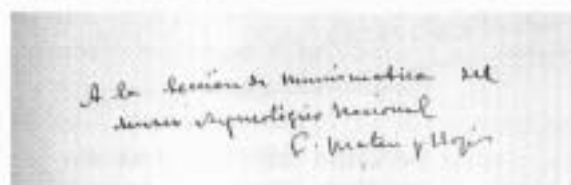 A la Sección de Numismatica del
Museo Arqueológico Nacional
F. Mateu y Llopis